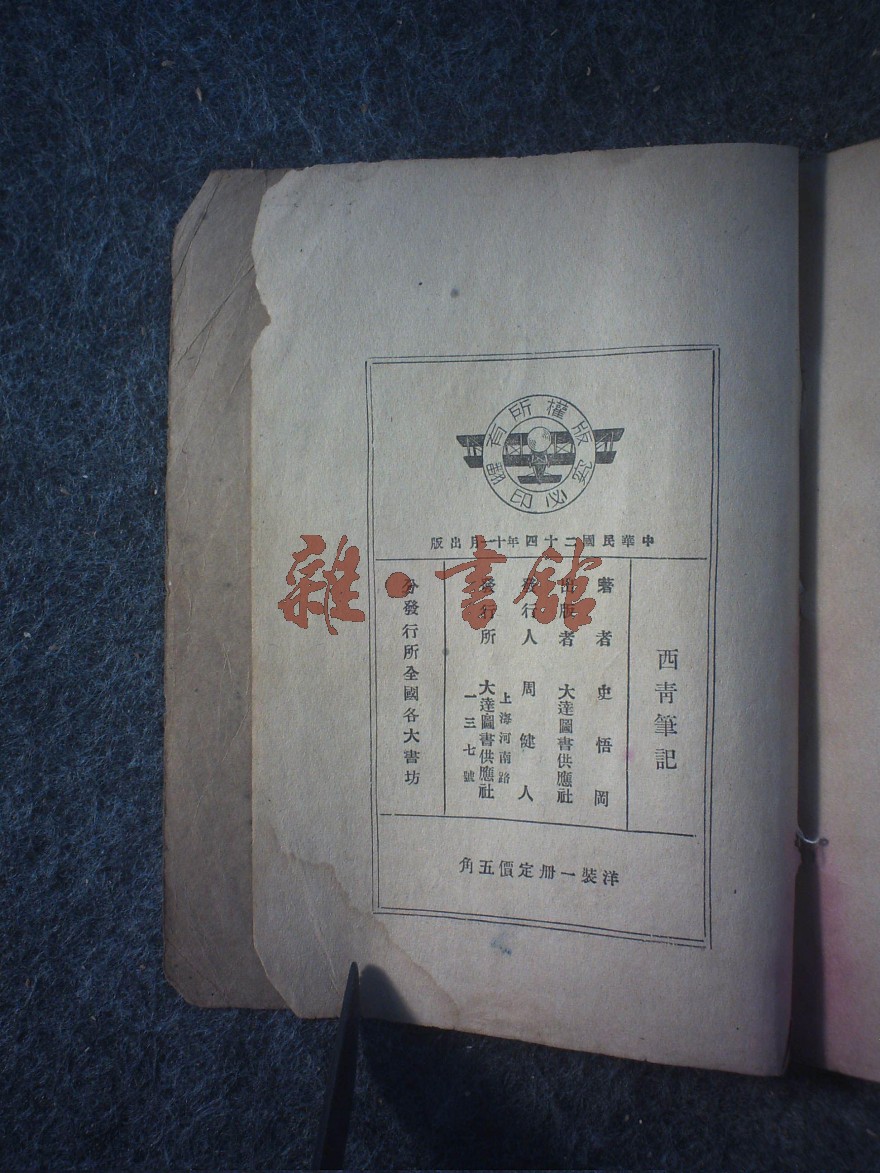 版權所有
翻印必究
中華民國二十四年十一月出版
西青筆記
著者 史悟岡
出版者 大達圖書供應社
發行人 周健人
發行所 上海河南路
大達圖書供應社
一三七號
分發行所全國各大書坊
洋裝一冊定價五角
雜·書館